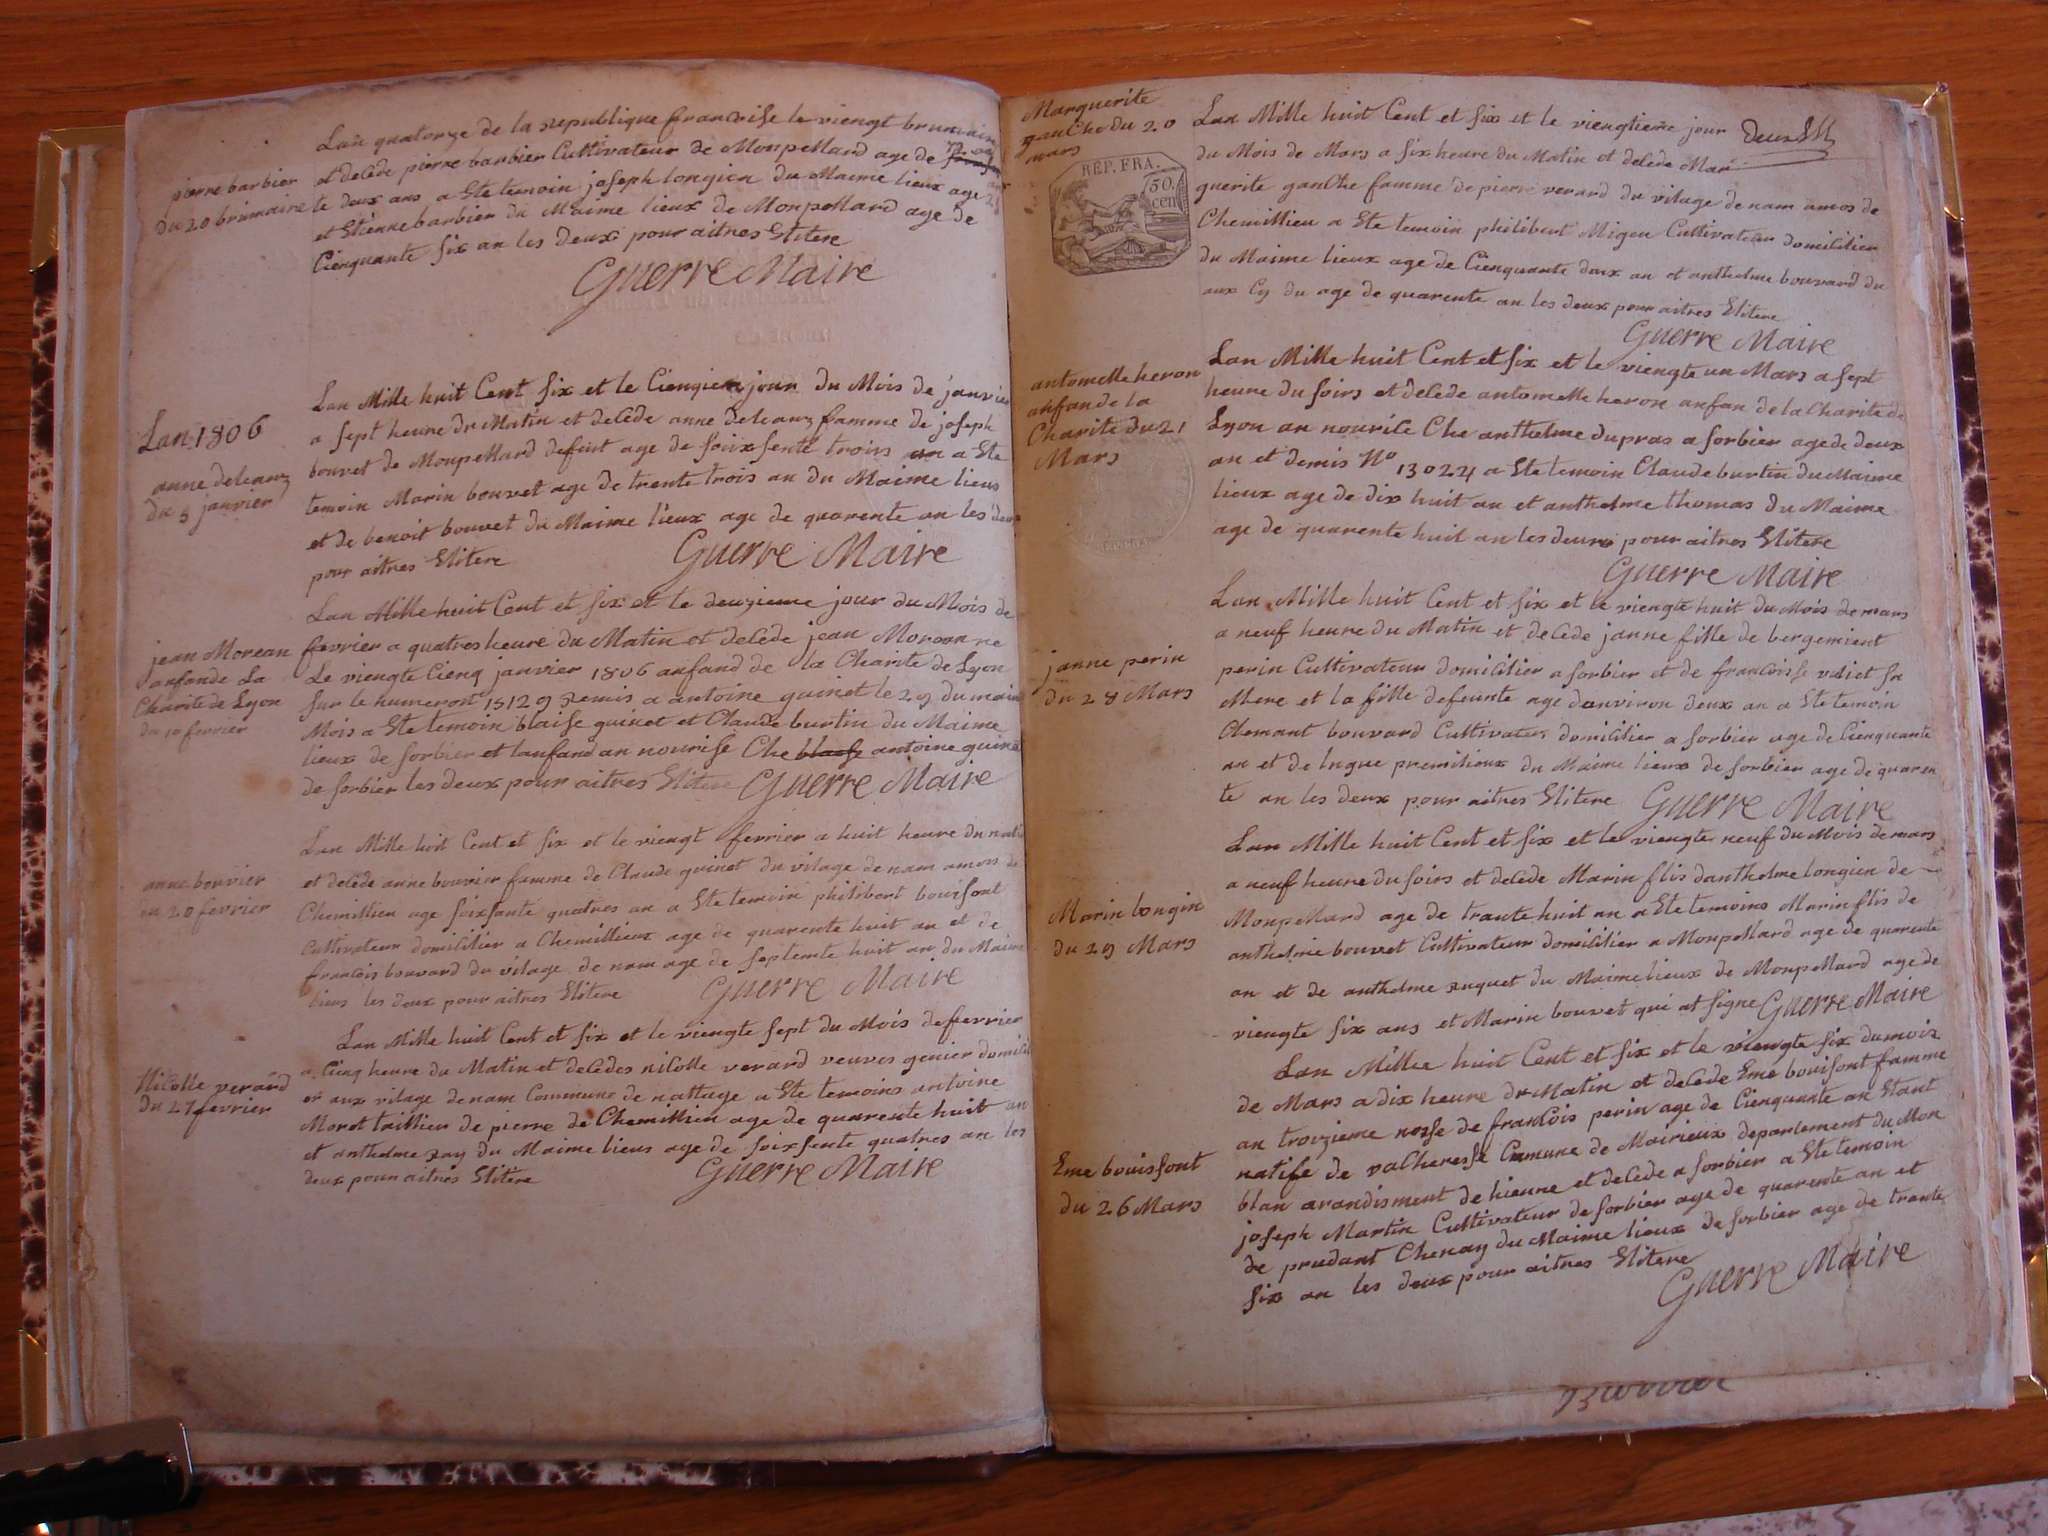 pierre barbier
du 20 brimaire
Lan quatorze de la republique francoise le viengt brumaire
et decede pierre barbier Cultivateur de Monpellard age de
te deux ans a Ete temoin joseph longien du Maime lieux age
et Etienne barbier du Maime lieux de Monpellard age de
Cienquante six an les deux pour aitres Elitere
Guerre Maire
Lan 1806
anne deleanz
du 5 janvier
Lan Mille huit Cent six et le Ciengien jour du Mois de janvier
a sept heure du Matin et decede anne deleanz famme de joseph
bouvet de Monpellard defeut age de soixsente trois an a Ete
temoin Marin bouvet age de trente trois an du Maime lieus
et de benoit bouvet du Maime lieux age de quarente an les deux
pour aitres Elitere
Guerre Maire
jean Morean
anfande La
Charite de Lyon
du fevrier
Lan Mille huit Cent et six et le deuzieme jour du Mois de
fevrier a quatres heure du Matin et decede jean Morean ne
Le viengte Cienq janvier 1806 anfand de la Charite de Lyon
sur le humeront 15129 remis a antoine guinet le 29 du maime
Mois a Ete temoin blaise guinet et Claude burtin du Maime
lieux de sorbier et lanfand an nourise Che blaise antoine guinet
de sorbier les deux pour aitres Elitere Guerre Maire
anne bouvier
du 20 fevrier
Lan Mille huit Cent et six et le viengt fevrier a huit heure du matin
et decede anne bouvier famme de Claude guinet du vilage de nam amons de
Chemillien age soixsante quatres an a Ete temoin philibert bouisont
Cultivateur domicilier a Chemillieux age de quarente huit an et de
francois bouvard du vilage de nam age de septente huit an du Maime
lieus les deux pour aitres Elitere
Guerre Maire
Nicolle verard
du 27 fevrier
Lan Mille huit Cent et six et le viengte sept du Mois de fevrier
a Cienq heure du Matin et decedes nicolle verard veuves genier domicili
er aux vilage de nam Commune de nattage a Ete temoins antoine
Moret taillier de pierre de Chemillien age de quarente huit an
et anthelme ray du Maime lieus age de soixsente quatres an les
deux pour aitres Elitere
Guerre Maire
Marguerite
gauche du 20
mars
REP. FRA.
50.
cen
Lan Mille huit Cent et six et le viengtieme jour
deux
du Mois de Mars a six heure du Matin et decede Mar
guerite gauche famme de pierre verard du vilage de nam amos de
Chemillieu a Ete temoin philibert Migeu Cultivateur domicilier
du Maime lieux age de Cienquante deux an et anthelme bouvard du
aux Cy du age de quarente an les deux pour aitres Elitere
Guerre Maire
antomelle heron
anfan de la
Charite du 21
Mars
Lan Mille huit Cent et six et le viengte un Mars a sept
heure du soirs et decede antomelle heron anfan de la Charite de
Lyon an nourile Che anthelme dupras a sorbier age de deux
an et demis No 13024 a Ete temoin Claude burtin du Maime
lieux age de dix huit an et anthelme thomas du Maime
age de quarente huit an les deuxs pour aitres Elitere
Guerre Maire
janne perin
du 28 Mars
Lan Mille huit Cent et six et le viengte huit du Mois de mars
a neuf heure du Matin et decede janne fille de bergemient
perin Cultivateur domicilier a sorbier et de francoisse sa
Mere et la fille defeunte age danviron deux an a Ete temoin
Clemant bouvard Cultivateur domicilier a sorbier age de Cienquante
an et de premilieux du Maime lieux de sorbier age de quaren
te an les deux pour aitres Elitere Guerre Maire
Marin longin
du 29 Mars
Lan Mille huit Cent et six et le viengte neuf du Mois de mars
a neuf heure du soirs et decede Marin flis danthelme longien de
Monpellard age de trante huit an a Ete temoins Marin flis de
anthelme bouvet Cultivateur domicilier a Monpellard age de quarente
an et de anthelme ruquet du Maime lieux de Monpellard age de
viengte six ans et Marin bouvet qui at signe Guerre Maire
Eme bouissont
du 26 Mars
Lan Mille huit Cent et six et le viengte six du mois
de Mars a dix heure du Matin et decede Eme bouisont famme
an trouzieme nosse de francois perin age de Cienquante an Etant
natife de valheresse Cumune de Mairieux departement du Mon
blan arandisment de hienne et decede a sorbier a Ete temoin
joseph Martin Cultivateur de sorbier age de quarente an et
de prudant Chenay du Maime lieux de sorbier age de trante
six an les deux pour aitres Elitere
Guerre Maire